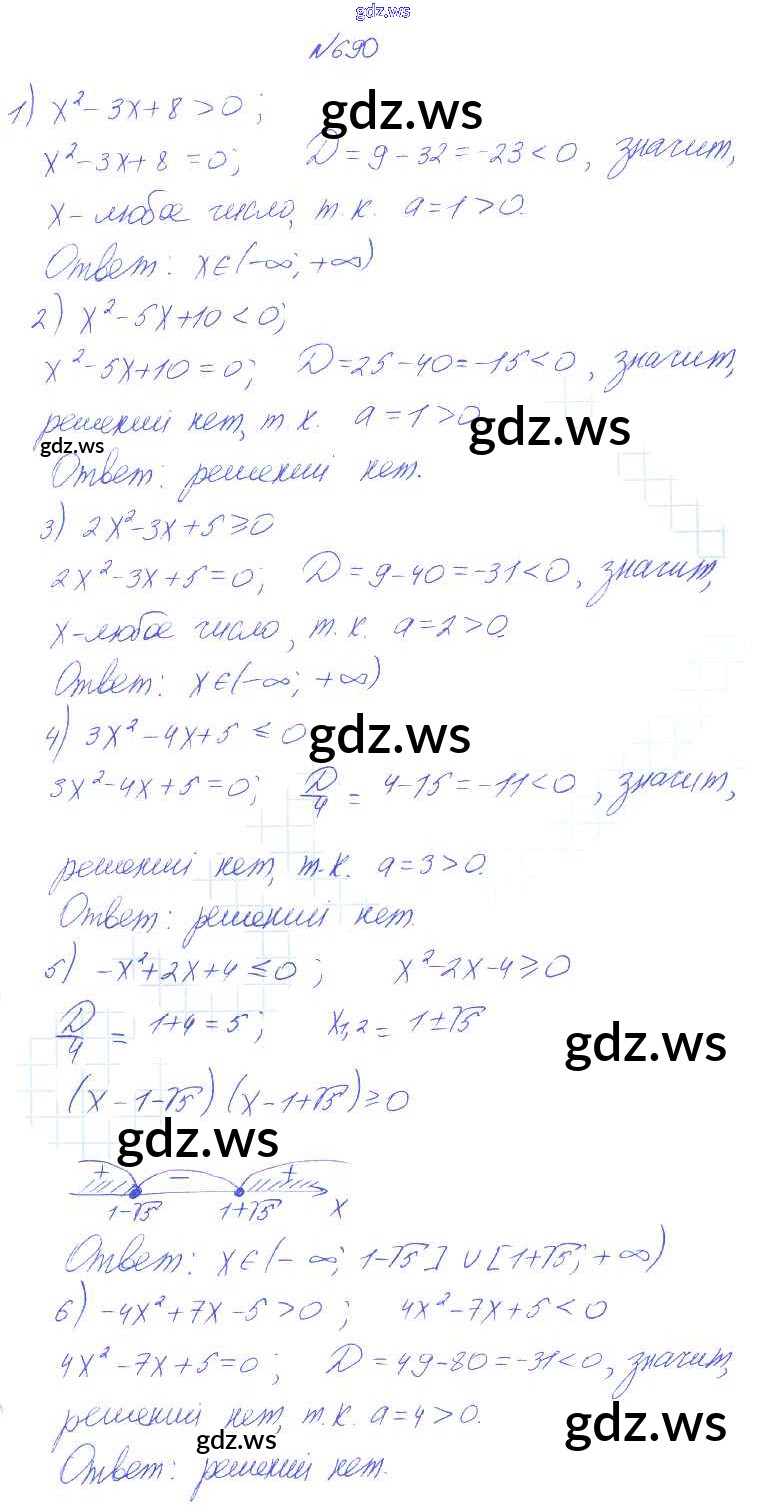 gdz.ws
№690
1) x²-3x+8>0; gdz.ws
x²-3x+8=0; D=9-32=-23<0, значит,
x-любое число, т.к. a=1>0.
Ответ: x∈(-∞; +∞)
2) x²-5x+10<0;
x²-5x+10=0; D=25-40=-15<0, значит,
решений нет, т.к. a=1>0 gdz.ws
gdz.ws
Ответ: решений нет.
3) 2x²-3x+5≥0
2x²-3x+5=0; D=9-40=-31<0, значит,
x-любое число, т.к. a=2>0.
Ответ: x∈(-∞; +∞)
4) 3x²-4x+5≤0 gdz.ws
3x²-4x+5=0; D/4=4-15=-11<0, значит,
решений нет, т.к. a=3>0.
Ответ: решений нет.
5) -x²+2x+4≤0; x²-2x-4≥0
D/4=1+4=5; x1,2=1±√5
gdz.ws
(x-1-√5)(x-1+√5)≥0
gdz.ws
+ - +
1-√5 1+√5 x
Ответ: x∈(-∞; 1-√5]∪[1+√5; +∞)
6) -4x²+7x-5>0; 4x²-7x+5<0
4x²-7x+5=0; D=49-80=-31<0, значит,
решений нет, т.к. a=4>0. gdz.ws
gdz.ws
Ответ: решений нет.